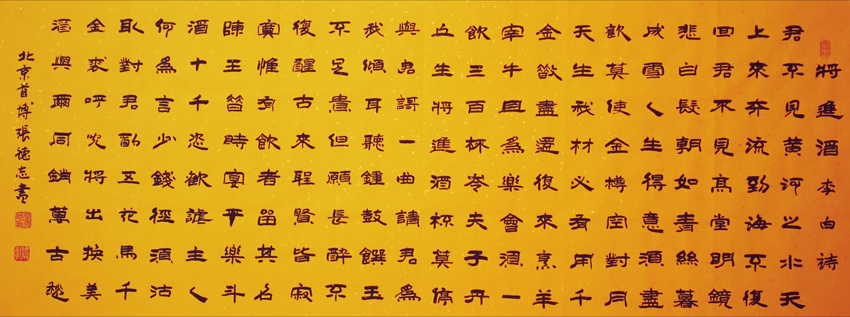 將進酒李白詩
君不見黃河之水天
上來奔流到海不復
回君不見高堂明鏡
悲白髮朝如青絲暮
成雪人生得意須盡
歡莫使金樽空對月
天生我材必有用千
金散盡還復來烹羊
宰牛且為樂會須一
飲三百杯岑夫子丹
丘生將進酒杯莫停
與君謌一曲請君為
我傾耳聽鍾鼓饌玉
不足貴但願長醉不
復醒古來聖賢皆寂
寞惟有飲者留其名
陳王昔時宴平樂斗
酒十千恣歡謔主人
何為言少錢徑須沽
取對君酌五花馬千
金裘呼兒將出換美
酒與爾同銷萬古愁
北京首博張德志書